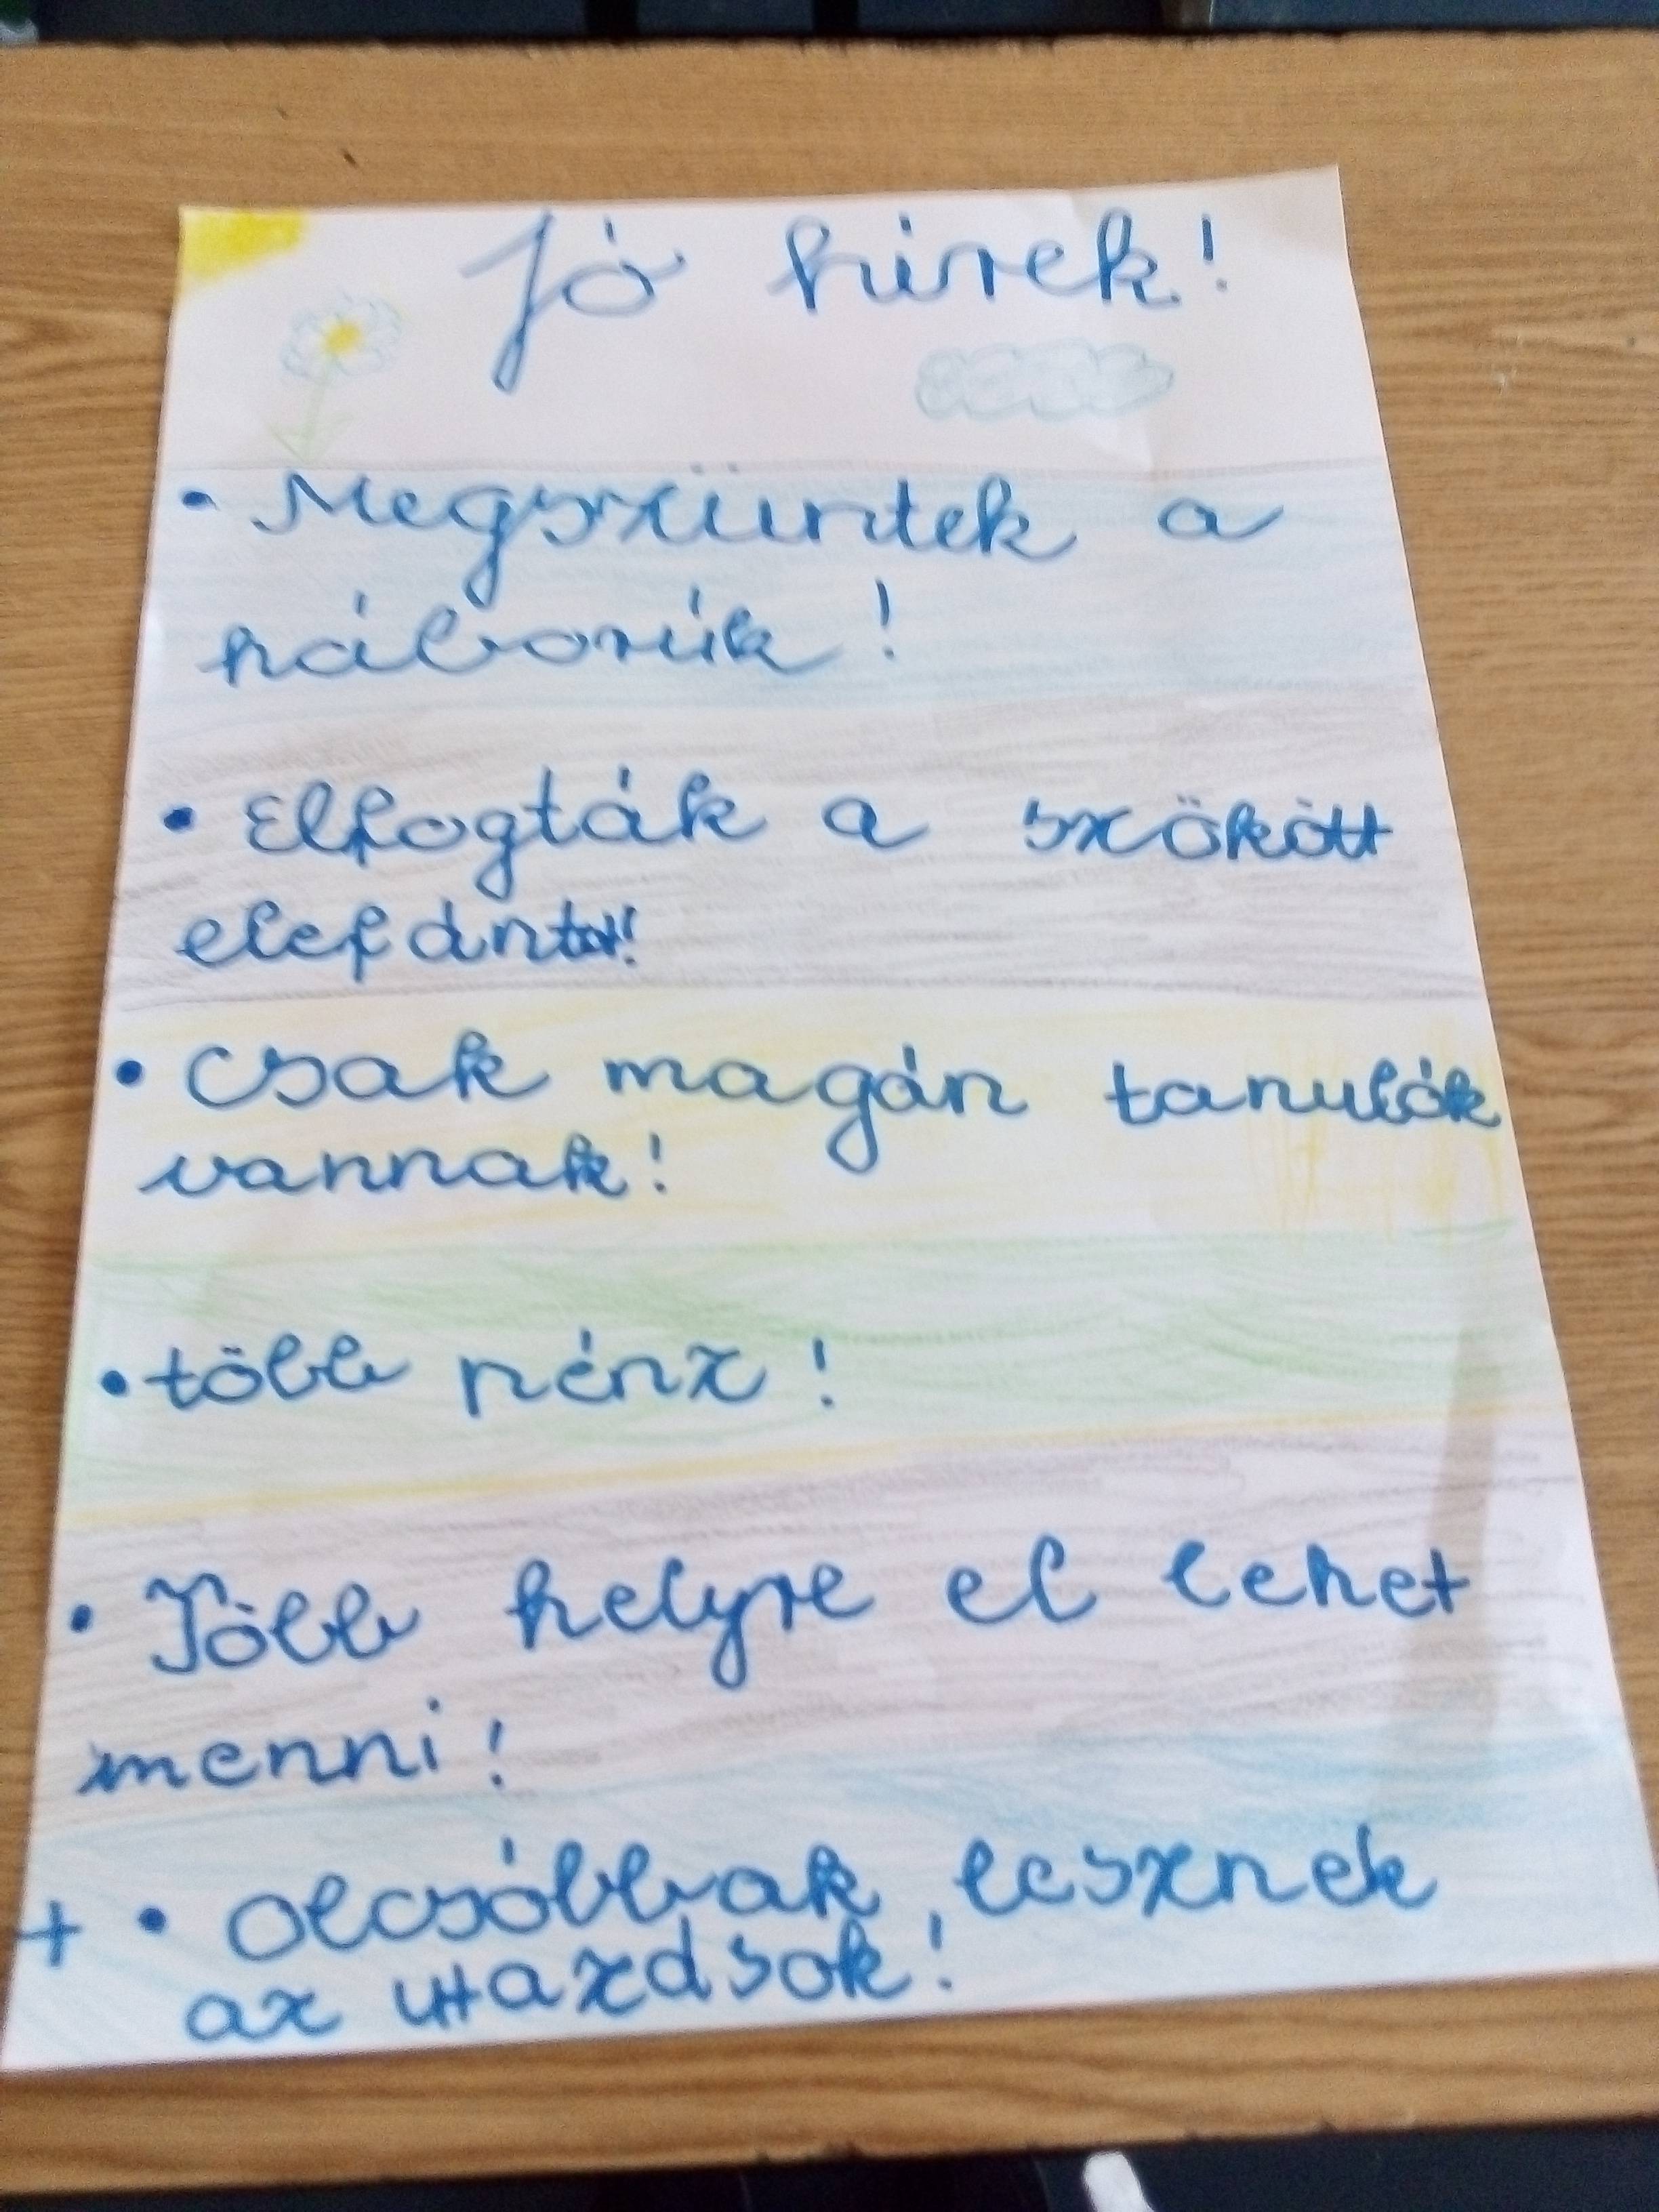 Jó hírek!
• Megszüntek a
háborúk!
• Elfogták a szökött
elefántot!
• Csak magán tanulók
vannak!
• több pénz!
• Több helyre el lehet
menni!
+ • Olcsóbbak lesznek
az utazások!